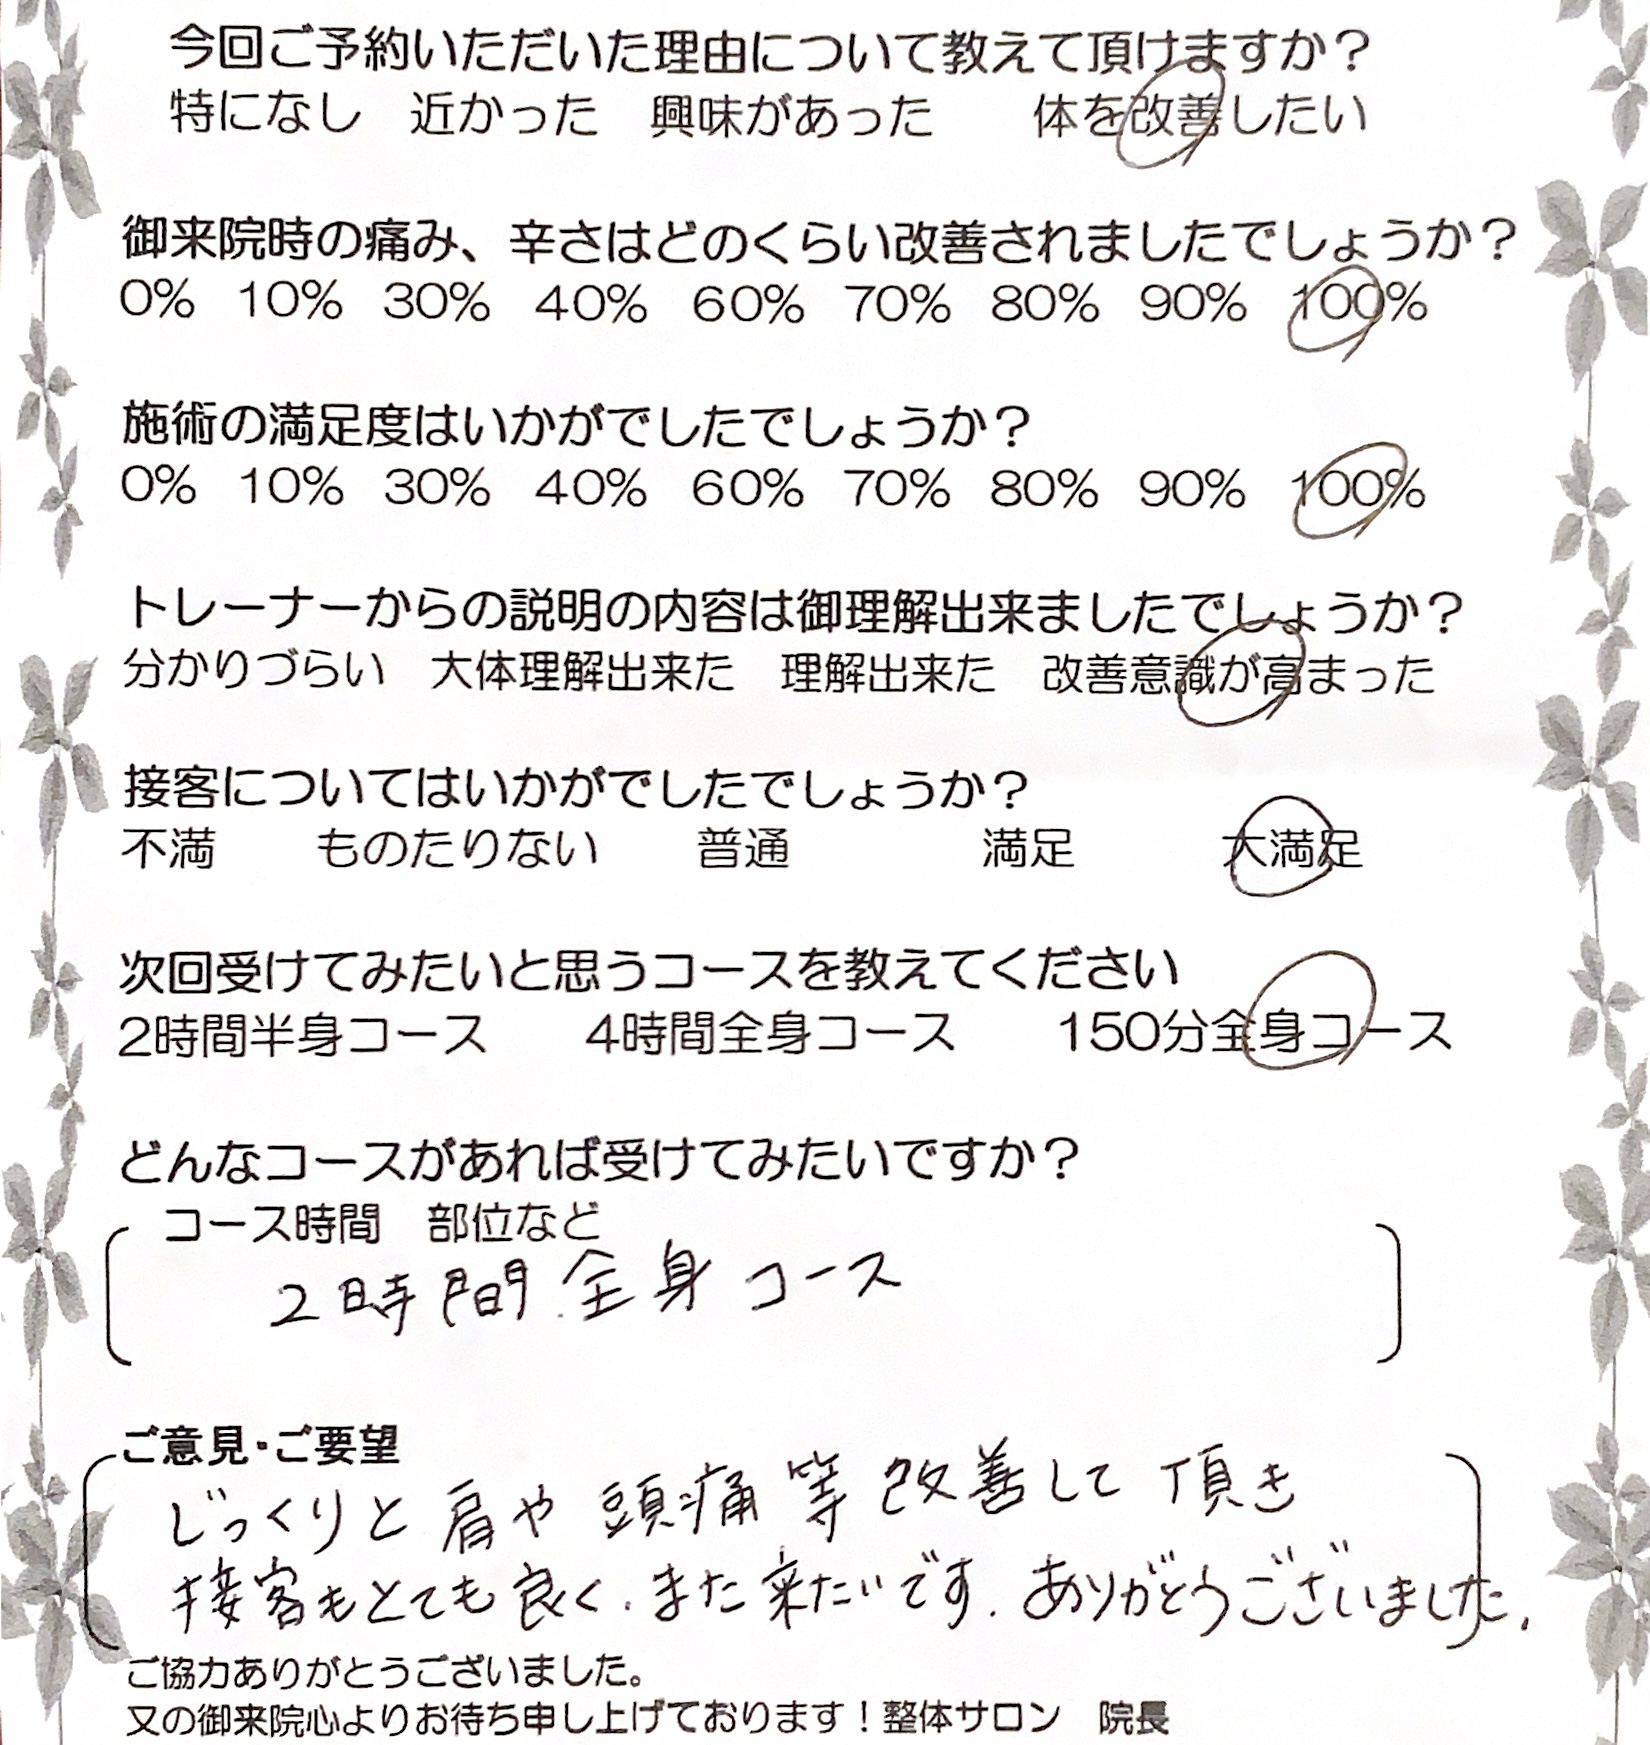 今回ご予約いただいた理由について教えて頂けますか？
特になし　近かった　興味があった　体を改善したい
御来院時の痛み、辛さはどのくらい改善されましたでしょうか？
0%　10%　30%　40%　60%　70%　80%　90%　100%
施術の満足度はいかがでしたでしょうか？
0%　10%　30%　40%　60%　70%　80%　90%　100%
トレーナーからの説明の内容は御理解出来ましたでしょうか？
分かりづらい　大体理解出来た　理解出来た　改善意識が高まった
接客についてはいかがでしたでしょうか？
不満　ものたりない　普通　満足　大満足
次回受けてみたいと思うコースを教えてください
2時間半身コース　4時間全身コース　150分全身コース
どんなコースがあれば受けてみたいですか？
コース時間　部位など
2時間全身コース
ご意見・ご要望
じっくりと肩や頭痛等改善して頂き
接客もとても良く、また来たいです。ありがとうございました。
ご協力ありがとうございました。
又の御来院心よりお待ち申し上げております！整体サロン　院長